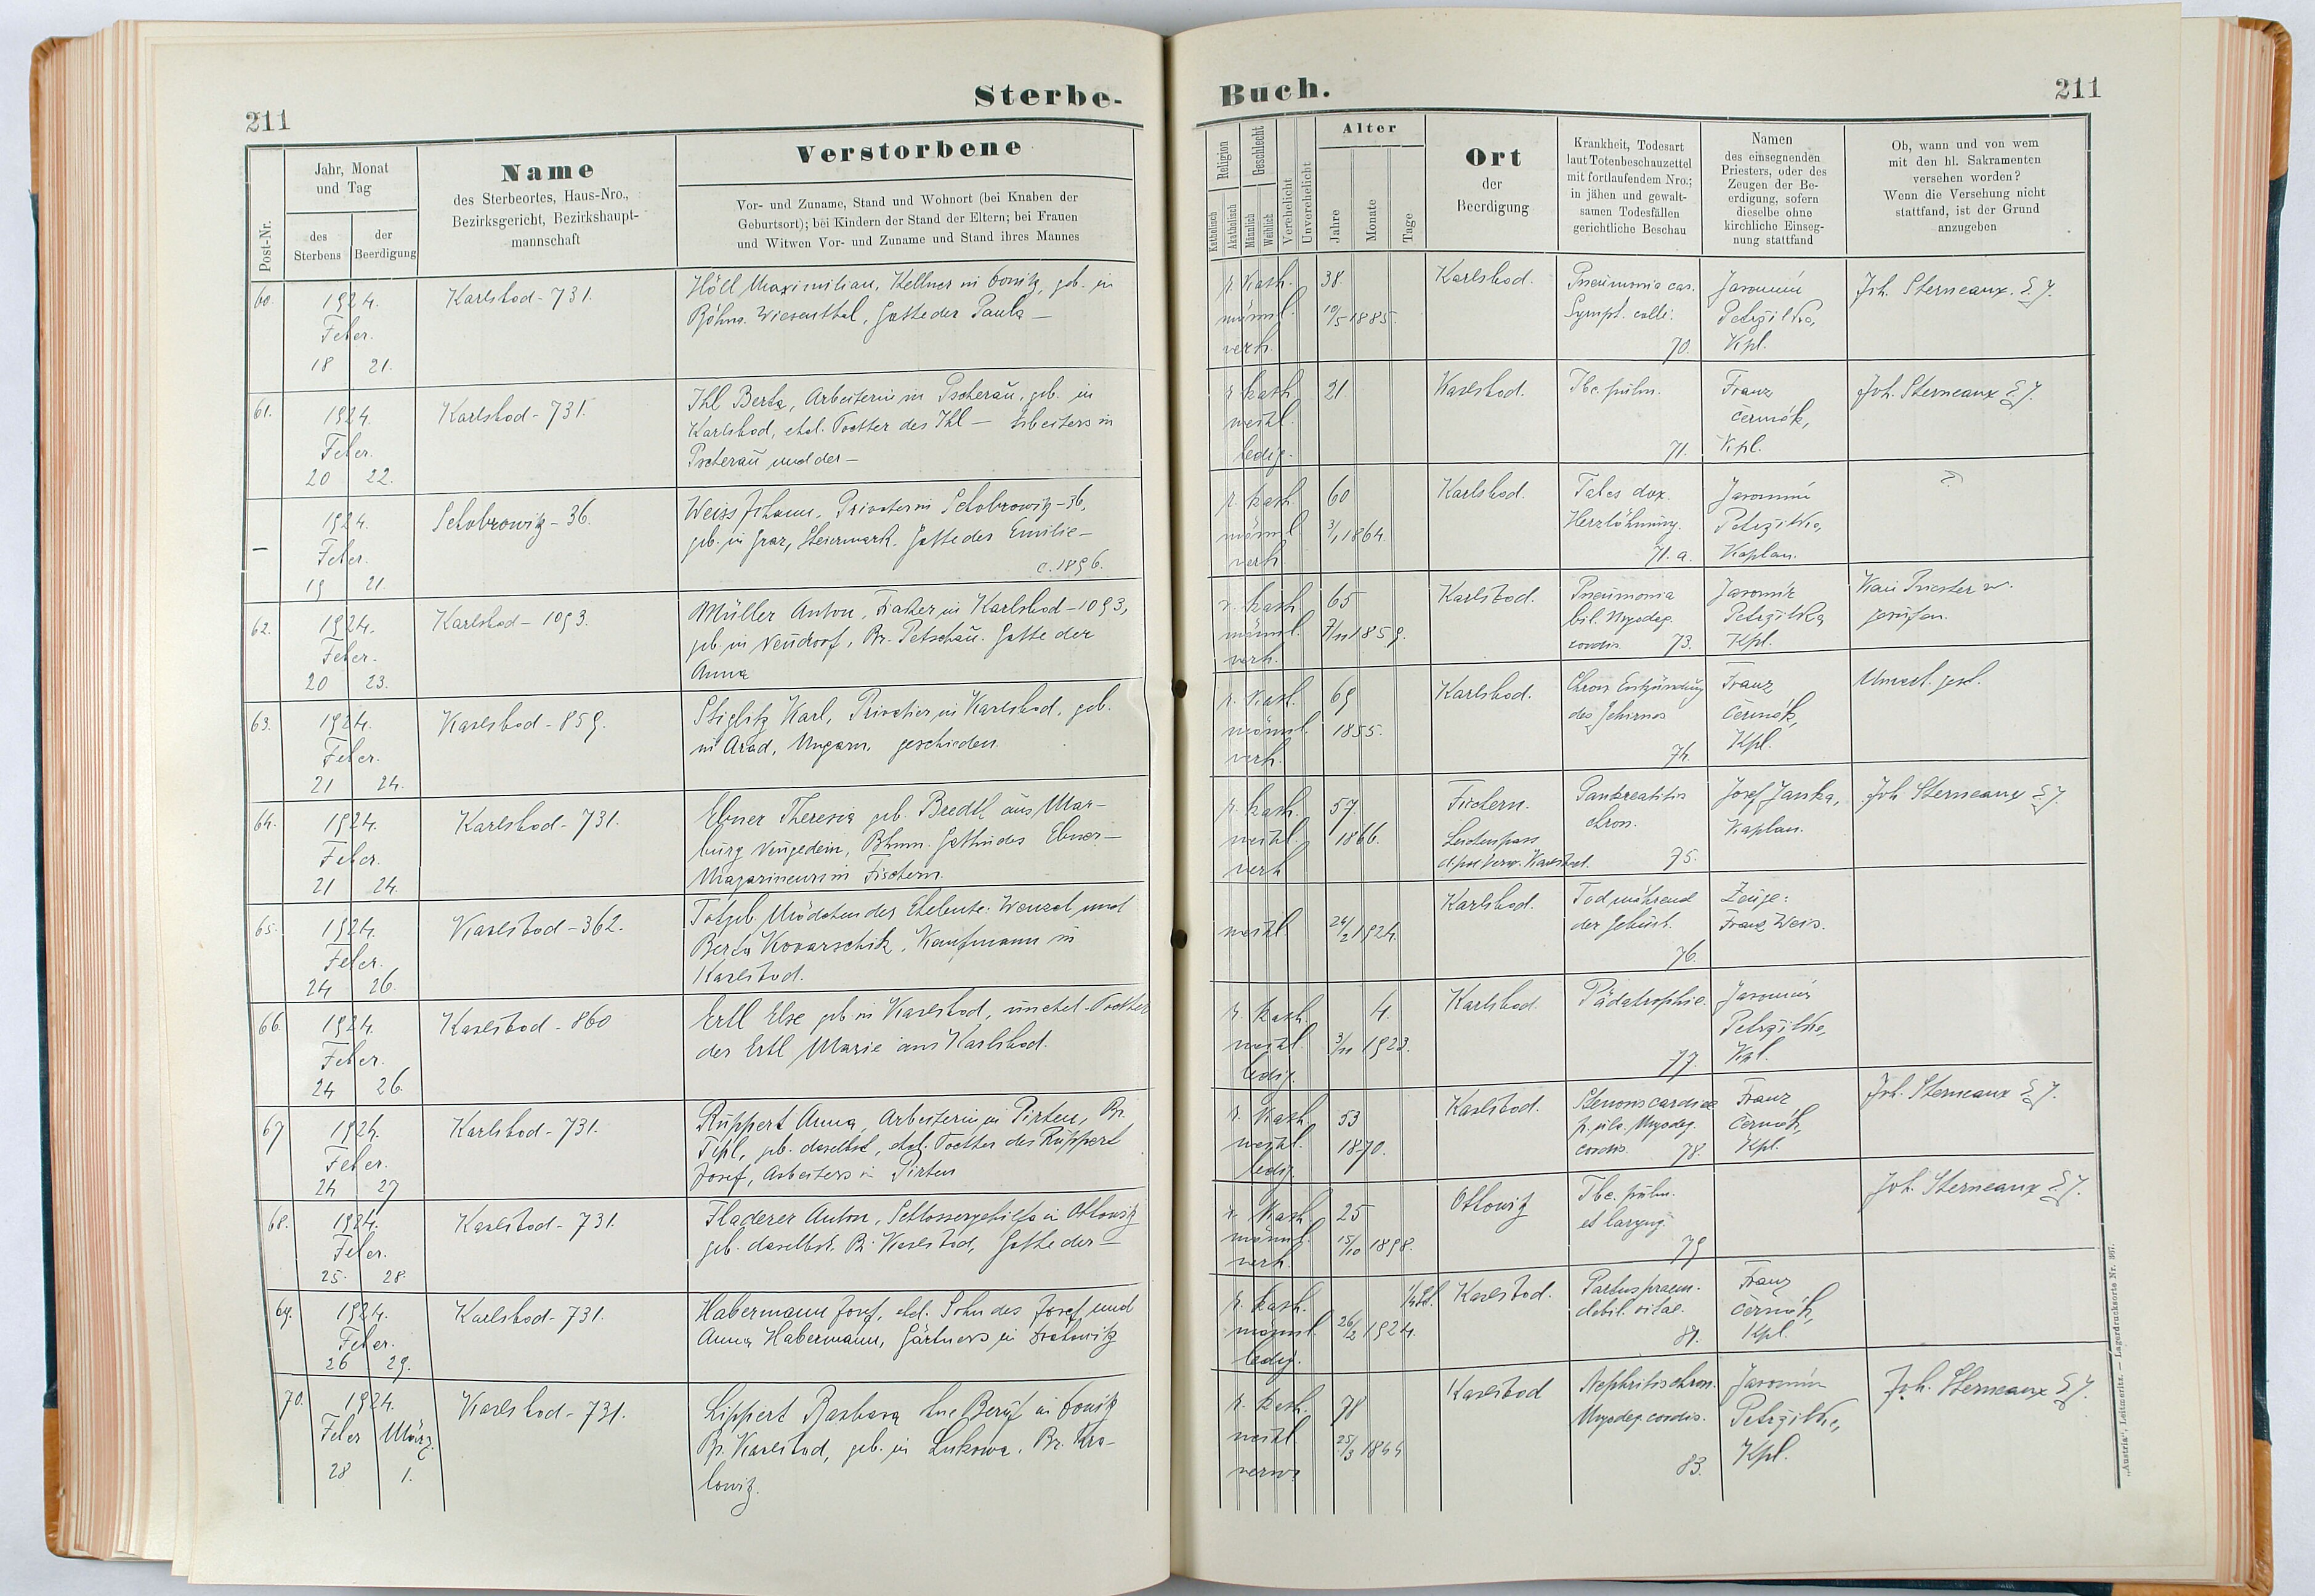 211
Sterbe-
Post-Nr.
Jahr, Monat
und Tag
des
Sterbens
der
Beerdigung
Name
des Sterbeortes, Haus-Nro.,
Bezirksgericht, Bezirkshaupt-
mannschaft
Verstorbene
Vor- und Zuname, Stand und Wohnort (bei Knaben der
Geburtsort); bei Kindern der Stand der Eltern; bei Frauen
und Witwen Vor- und Zuname und Stand ihres Mannes
60.
1924.
Feber.
18 21.
Karlsbad - 731.
Höll Maximilian, Kellner in Donitz, geb. in
Böhm. Wiesenthal, Gatte der Paula —
61.
1924.
Feber.
20 22.
Karlsbad - 731.
Ihl Berta, Arbeiterin in Pscherau, geb. in
Karlsbad, ehel. Tochter des Ihl — Arbeiters in
Pscherau und der —
—
1924.
Feber.
19 21.
Schobrowitz - 36.
Weiss Johann, Privatier in Schobrowitz - 36,
geb. in Graz, Steiermark. Gatte der Emilie —
c. 1896.
62.
1924.
Feber.
20 23.
Karlsbad - 1093.
Müller Anton, Fiaker in Karlsbad - 1093,
geb. in Neudorf, Bz. Petschau. Gatte der
Anna
63.
1924.
Feber.
21 24.
Karlsbad - 859.
Stiglitz Karl, Privatier in Karlsbad, geb.
in Arad, Ungarn, geschieden.
64.
1924.
Feber.
21 24.
Karlsbad - 731.
Ebner Theresia geb. Bredl aus Mar-
burg Neugedein, Böhmn. Gattin des Ebner —
Magazineurs in Fischern.
65.
1924.
Feber.
24 26.
Karlsbad - 362.
Totgeb. Mädchen des Eheleute: Wenzel und
Berta Kovarschik, Kaufmann in
Karlsbad.
66.
1924.
Feber.
24 26.
Karlsbad - 860
Ertl Else geb. in Karlsbad, unehel. Tochter
der Ertl Marie aus Karlsbad.
67
1924.
Feber.
24 27
Karlsbad - 731.
Ruppert Anna, Arbeiterin in Pirten, Bz.
Tepl, geb. daselbst, ehel. Tochter des Ruppert
Josef, Arbeiters in Pirten
68.
1924.
Feber.
25. 28.
Karlsbad - 731.
Fladerer Anton, Schlossergehilfe in Ottowitz
geb. daselbst. Bz. Karlsbad, Gatte der —
69.
1924.
Feber.
26 29.
Karlsbad - 731.
Habermann Josef, ehel. Sohn des Josef und
Anna Habermann, Gärtners in Drahowitz
70.
1924.
Feber März
28 1.
Karlsbad - 731.
Lippert Barbara ohne Beruf in Donitz
Bz. Karlsbad, geb. in Lukowa, Bz. Kra-
lowitz.
Buch.
211
Religion
Katholisch
Akatholisch
Geschlecht
Männlich
Weiblich
Verehelicht
Unverehelicht
Alter
Jahre
Monate
Tage
Ort
der
Beerdigung
Krankheit, Todesart
laut Totenbeschauzettel
mit fortlaufendem Nro.;
in jähen und gewalt-
samen Todesfällen
gerichtliche Beschau
Namen
des einsegnenden
Priesters, oder des
Zeugen der Be-
erdigung, sofern
dieselbe ohne
kirchliche Einseg-
nung stattfand
Ob, wann und von wem
mit den hl. Sakramenten
versehen worden?
Wenn die Versehung nicht
stattfand, ist der Grund
anzugeben
r. kath.
männl.
verh.
38.
10/5 1885.
Karlsbad.
Pneumonia
70.
Jaromir
Petržilka,
Kpl.
Joh. Sterneaux. S.J.
r. kath.
weibl.
ledig.
21.
Karlsbad.
Tbc. pulm.
71.
Franz
Čermák,
Kpl.
Joh. Sterneaux S.J.
r. kath.
männl
verh.
60
3/1 1864.
Karlsbad.
Tabes dor.
Herzlähmung.
71. a.
Jaromir
Petržilka,
Kaplan.
?
r. kath.
männl.
verh.
65
7/11 1859.
Karlsbad.
Pneumonia
bil. Myodeg.
cordis. 73.
Jaromir
Petržilka
Kpl.
Kein Priester w.
gerufen.
r. kath.
männl.
verh.
69
1855.
Karlsbad.
Chron. Entzündung
des Gehirnes
74.
Franz
Čermák,
Kpl.
r. kath.
weibl.
verh
57
1866.
Fischern.
Leichenpass
Karlsbad.
Pankreatitis
chron.
75.
Josef Janka,
Kaplan.
Joh. Sterneaux S.J.
weibl.
24/2 1924.
Karlsbad.
Tod während
der Geburt.
76.
Zeuge:
Franz Weis.
r. kath.
weibl.
ledig.
4.
3/11 1923.
Karlsbad.
Pädatrophie.
77.
Jaromir
Petržilka,
Kpl.
r. kath.
weibl.
ledig.
53
1870.
Karlsbad.
Myodeg.
cordis. 78.
Franz
Čermák,
Kpl.
Joh. Sterneaux S.J.
r. kath.
männl.
verh.
25
15/10 1898.
Ottowitz
Tbc. pulm.
et laryng.
79
Joh. Sterneaux S.J.
r. kath.
männl.
ledig.
1/4 St.
26/2 1924.
Karlsbad.
Partus praem.
debil. vitae.
81.
Franz
Čermák,
Kpl.
r. kath.
weibl
verw.
78
25/3 1845
Karlsbad
Nephritis chron.
Myodeg. cordis.
83.
Jaromir
Petržilka,
Kpl.
Joh. Sterneaux S.J.
„Austria“, Leitmeritz. — Lagerdrucksorte Nr. 367.